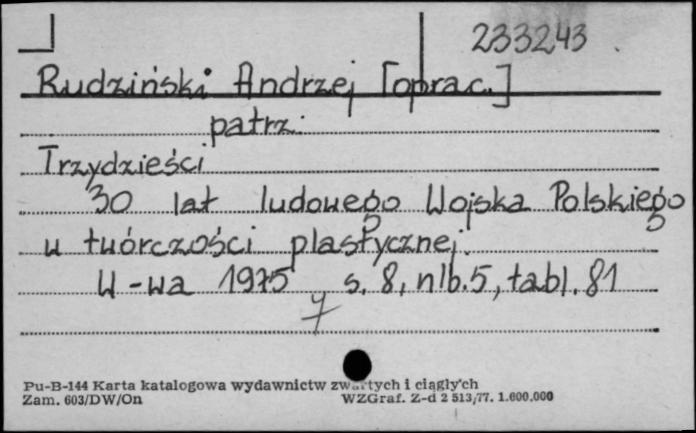 233243
Rudziński Andrzej [oprac.]
patrz:
Trzydzieści
30 lat ludowego Wojska Polskiego
w twórczości plastycznej.
W-wa 1975 s. 8, nlb. 5, tabl. 81
Pu-B-144 Karta katalogowa wydawnictw zwartych i ciągłych
Zam. 603/DW/On WZGraf. Z-d 2 513/77. 1.600.000